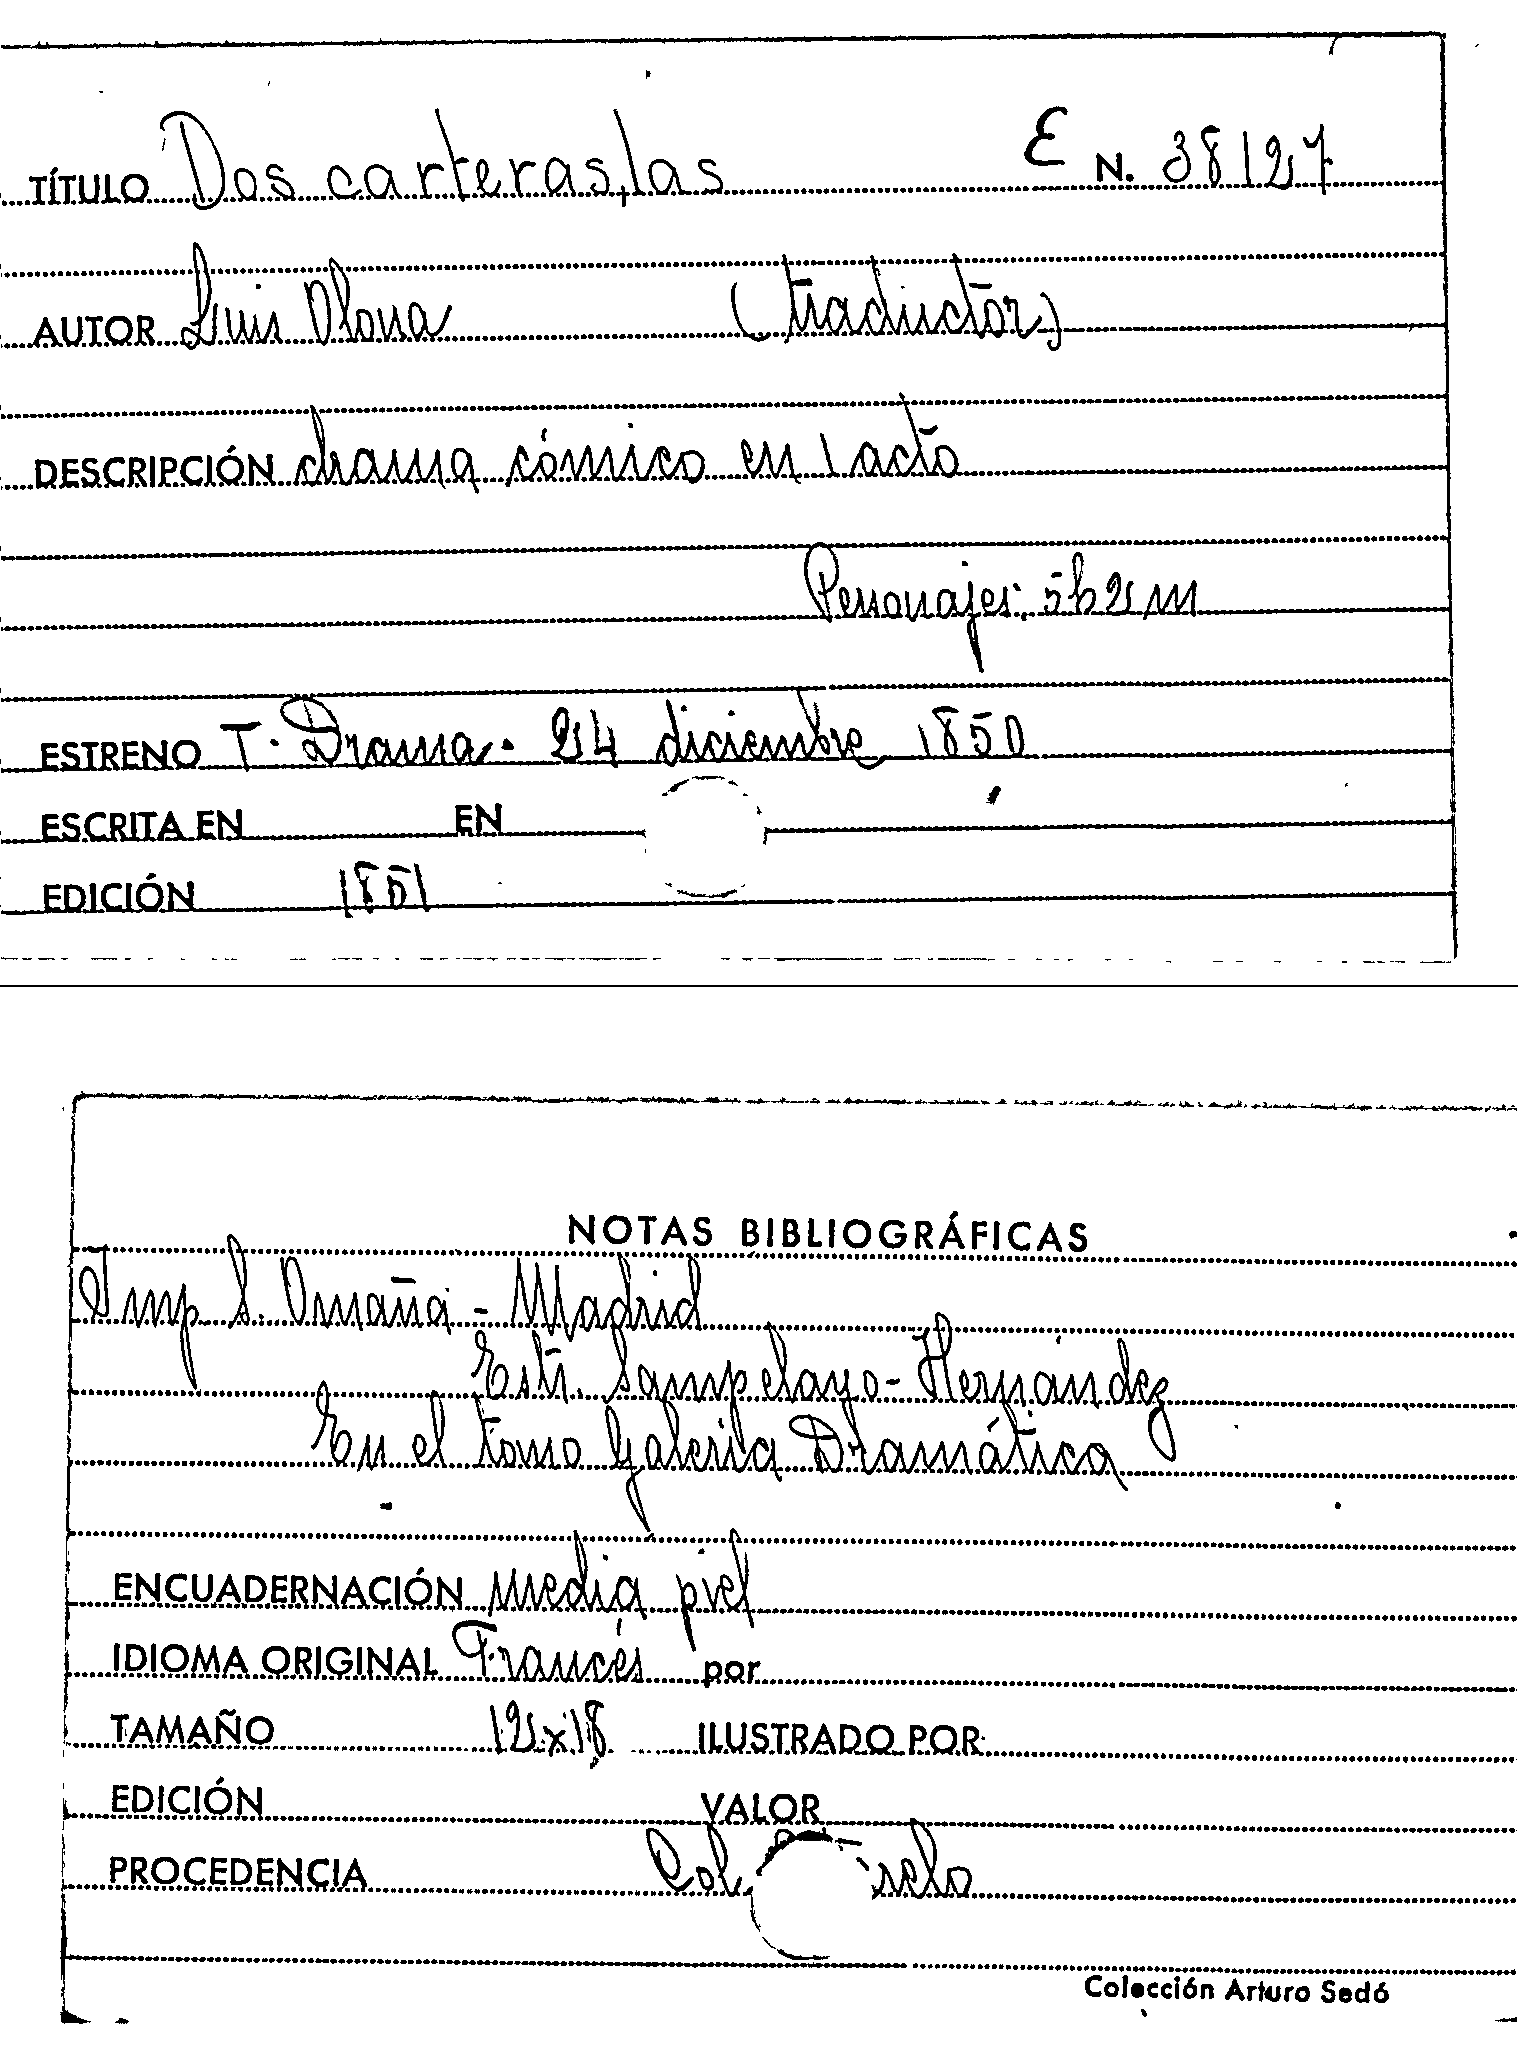 TÍTULO Dos carteras, las E N. 38127
AUTOR Luis Olona (traductor)
DESCRIPCIÓN drama cómico en 1 acto
Personajes: 5h 2m
ESTRENO T. Drama. 24 diciembre 1850
ESCRITA EN EN
EDICIÓN 1851
NOTAS BIBLIOGRÁFICAS
Imp S. Omaña - Madrid
Estr. Sampelayo - Hernández
En el tomo Galeria Dramática
ENCUADERNACIÓN media piel
IDIOMA ORIGINAL Francés por
TAMAÑO 12x18 ILUSTRADO POR
EDICIÓN VALOR
PROCEDENCIA Col.
Colección Arturo Sedó